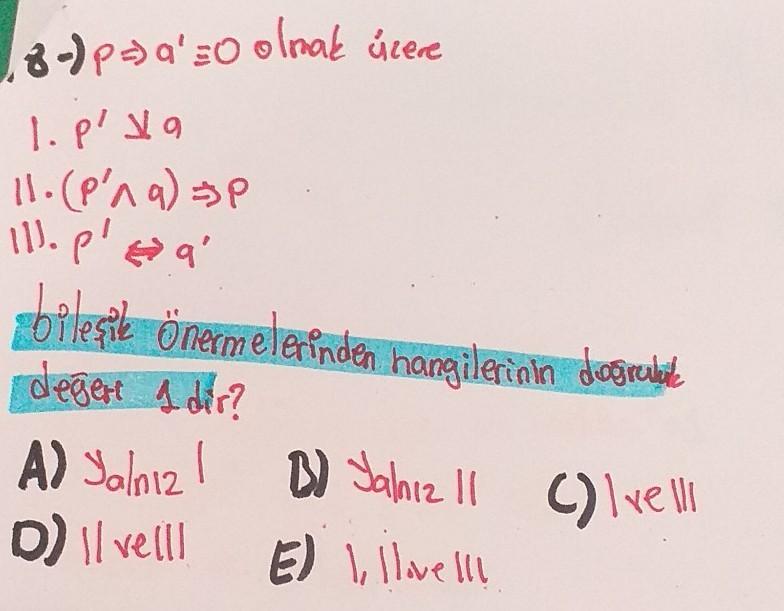 8-) p⇒q'≡0 olmak üzere
I. p' ⊻ q
II. (p'∧ q) ⇒ p
III. p' ⇔ q'
bileşik önermelerinden hangilerinin doğruluk
değeri 1 dir?
A) Yalnız I B) Yalnız II C) I ve III
D) II ve III E) I, II ve III